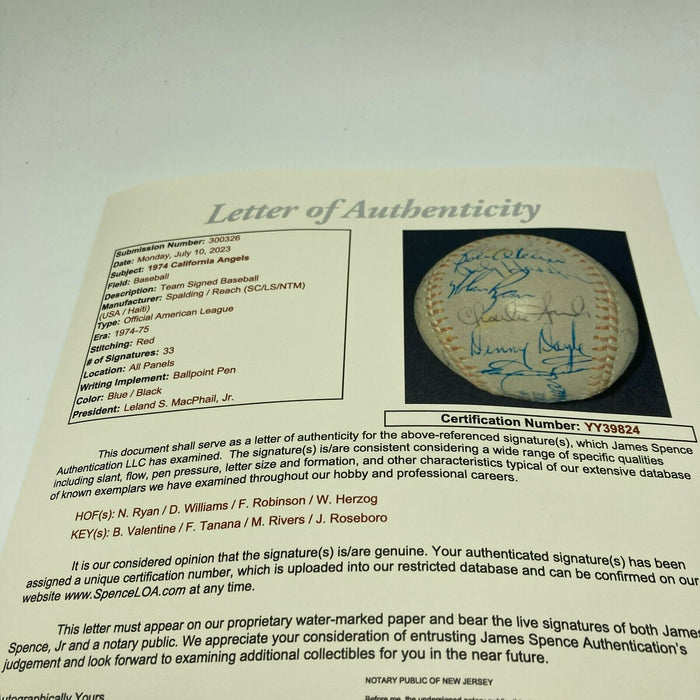 Letter of Authenticity
Submission Number: 300326
Date: Monday, July 10, 2023
Subject: 1974 California Angels
Field: Baseball
Description: Team Signed Baseball
Manufacturer: Spalding / Reach (SC/LS/NTM)
(USA / Haiti)
Type: Official American League
Era: 1974-75
Stitching: Red
# of Signatures: 33
Location: All Panels
Writing Implement: Ballpoint Pen
Color: Blue / Black
President: Leland S. MacPhail, Jr.
Denny Doyle
Certification Number: YY39824
This document shall serve as a letter of authenticity for the above-referenced signature(s), which James Spence
Authentication LLC has examined. The signature(s) is/are consistent considering a wide range of specific qualities
including slant, flow, pen pressure, letter size and formation, and other characteristics typical of our extensive database
of known exemplars we have examined throughout our hobby and professional careers.
HOF(s): N. Ryan / D. Williams / F. Robinson / W. Herzog
KEY(s): B. Valentine / F. Tanana / M. Rivers / J. Roseboro
It is our considered opinion that the signature(s) is/are genuine. Your authenticated signature(s) has been
assigned a unique certification number, which is uploaded into our restricted database and can be confirmed on our
website www.SpenceLOA.com at any time.
This letter must appear on our proprietary water-marked paper and bear the live signatures of both James
Spence, Jr and a notary public. We appreciate your consideration of entrusting James Spence Authentication's
judgement and look forward to examining additional collectibles for you in the near future.
NOTARY PUBLIC OF NEW JERSEY
Autographically Yours